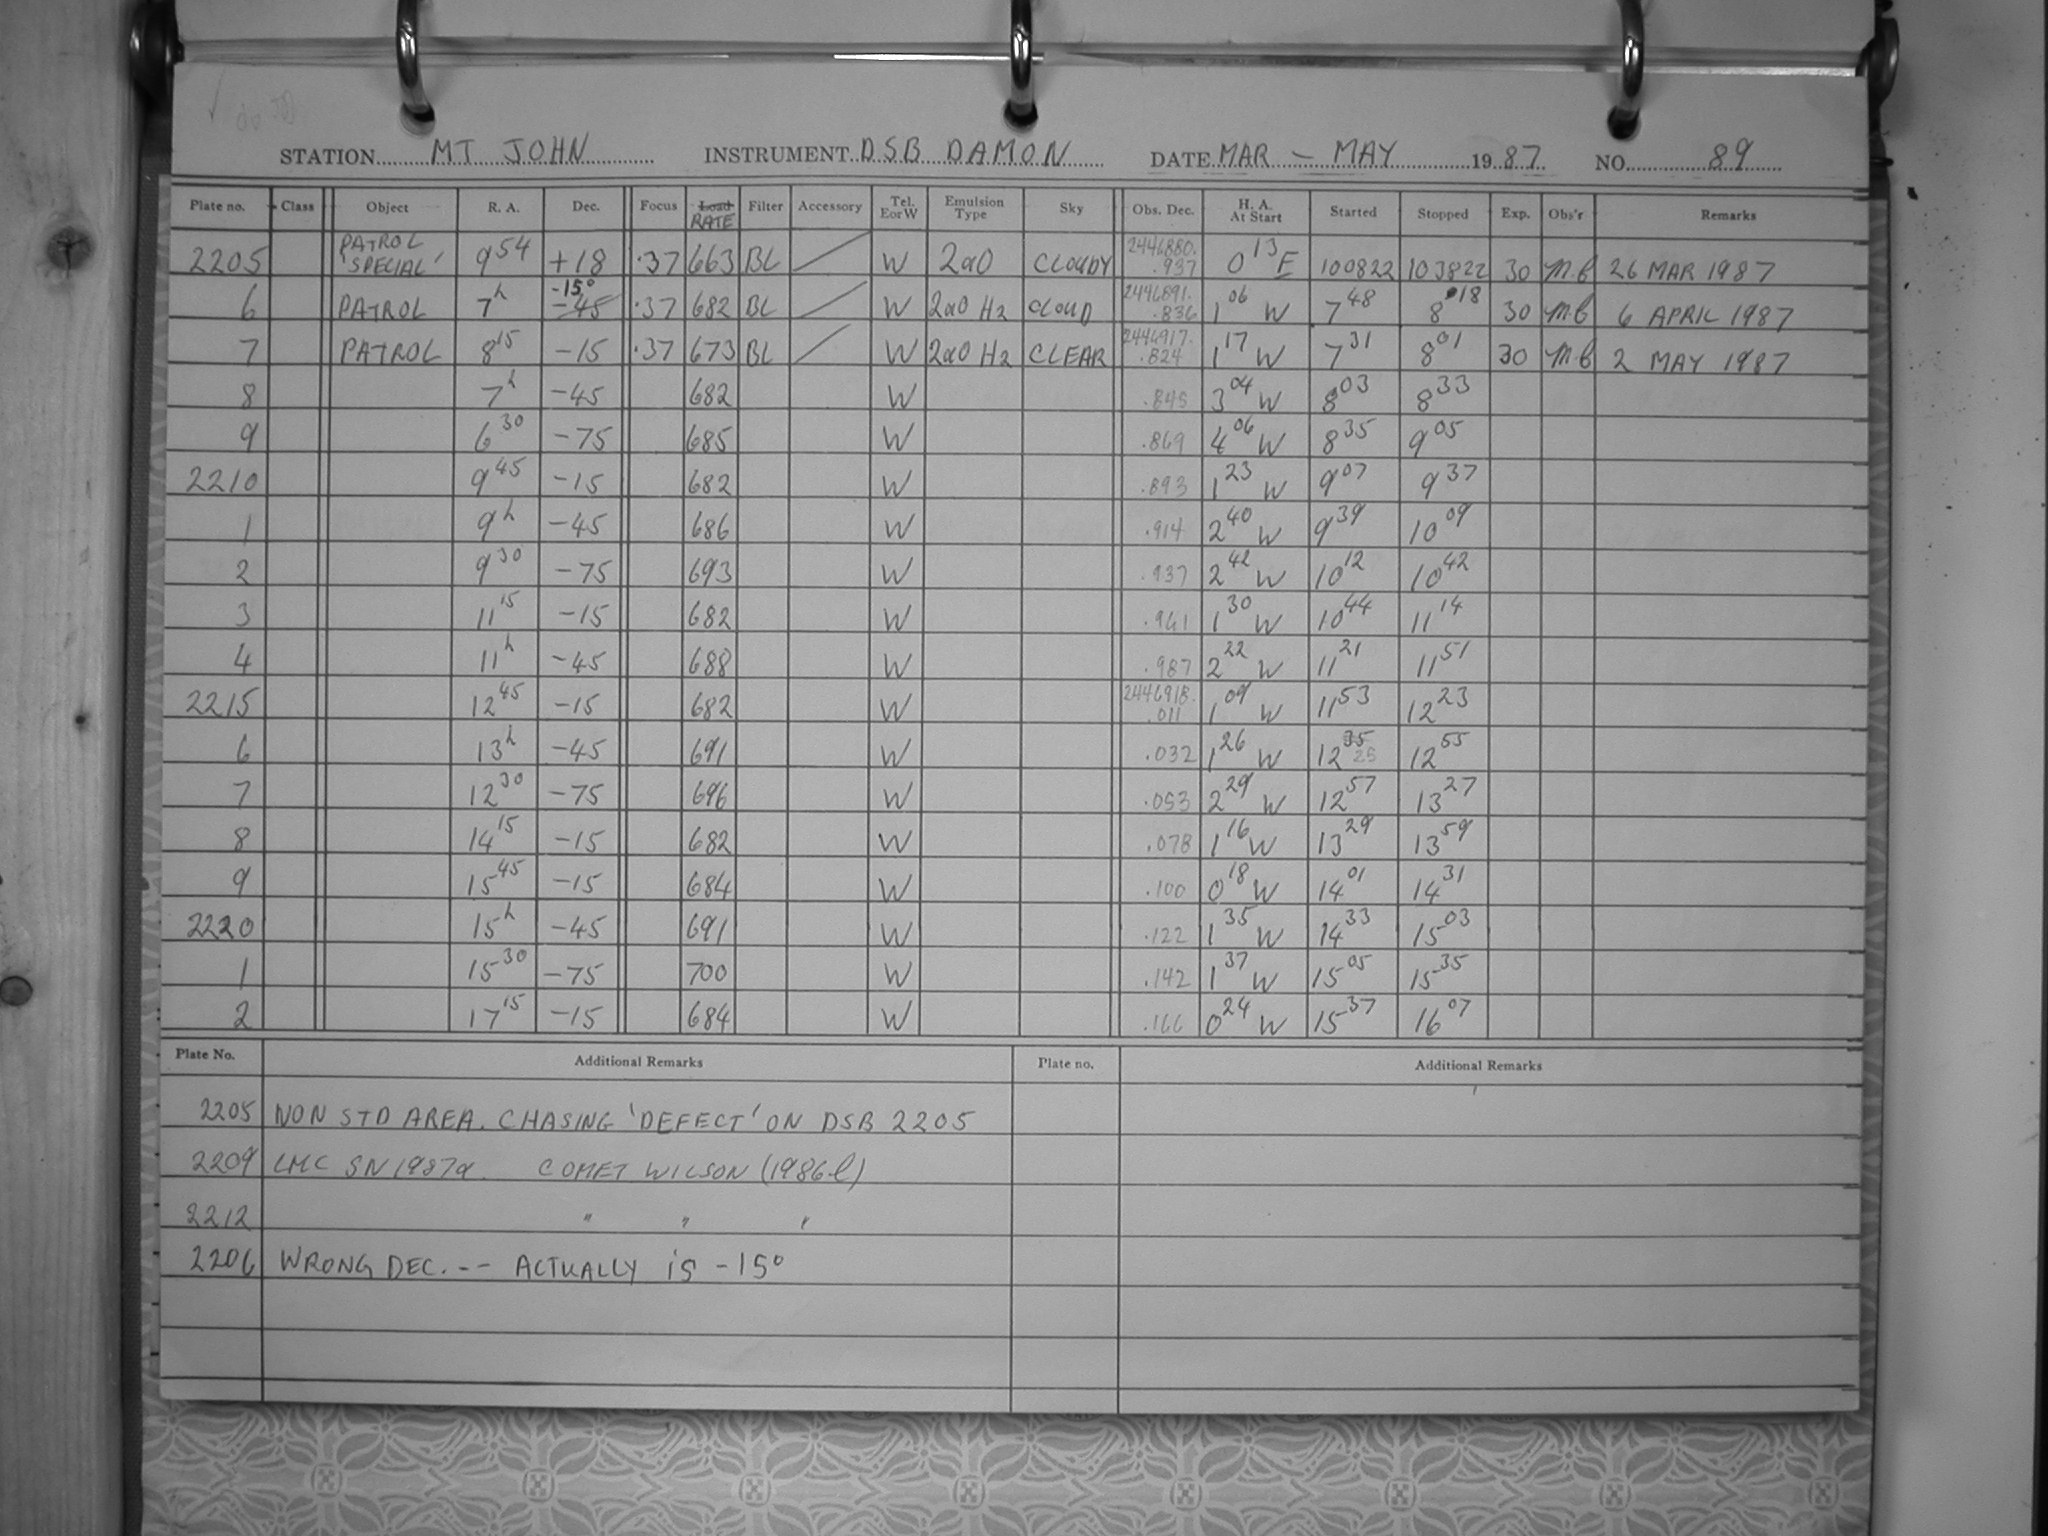 STATION MT JOHN INSTRUMENT DSB DAMON DATE MAR - MAY 1987 NO. 89
Plate no. Class Object R. A. Dec. Focus Load RATE Filter Accessory Tel. E or W Emulsion Type Sky Obs. Dec. H. A. At Start Started Stopped Exp. Obs'r Remarks
2205 PATROL 'SPECIAL' 9 54 +18 .37 663 BL / W 2a0 CLOUDY 2446880. .937 0 13 E 100822 103822 30 M.B 26 MAR 1987
6 PATROL 7h -15° -45 .37 682 BL / W 2a0 H2 CLOUD 2446891. .836 1 06 W 7 48 8 18 30 M.B 6 APRIL 1987
7 PATROL 8 15 -15 .37 673 BL / W 2a0 H2 CLEAR 2446917. .824 1 17 W 7 31 8 01 30 M.B 2 MAY 1987
8 7h -45 682 W .845 3 04 W 8 03 8 33
9 6 30 -75 685 W .869 4 06 W 8 35 9 05
2210 9 45 -15 682 W .893 1 23 W 9 07 9 37
1 9h -45 686 W .914 2 40 W 9 39 10 09
2 9 30 -75 693 W .937 2 42 W 10 12 10 42
3 11 15 -15 682 W .961 1 30 W 10 44 11 14
4 11h -45 688 W .987 2 22 W 11 21 11 51
2215 12 45 -15 682 W 2446918. .011 1 09 W 11 53 12 23
6 13h -45 691 W .032 1 26 W 12 35 25 12 55
7 12 30 -75 696 W .053 2 29 W 12 57 13 27
8 14 15 -15 682 W .078 1 16 W 13 29 13 59
9 15 45 -15 684 W .100 0 18 W 14 01 14 31
2220 15h -45 691 W .122 1 35 W 14 33 15 03
1 15 30 -75 700 W .142 1 37 W 15 05 15 35
2 17 15 -15 684 W .166 0 24 W 15 37 16 07
Plate No. Additional Remarks Plate no. Additional Remarks
2205 NON STD AREA. CHASING 'DEFECT' ON DSB 2205
2209 LMC SN1987a COMET WILSON (1986l)
2212 " " "
2206 WRONG DEC. -- ACTUALLY is -15°